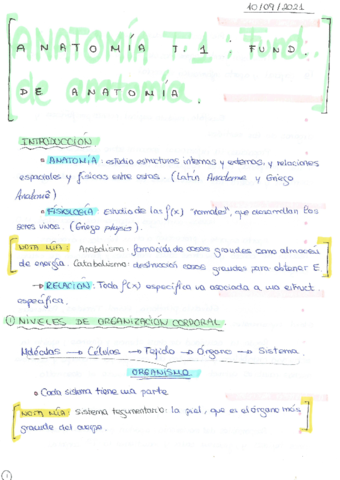 10/09/2021
ANATOMÍA T.1 : FUND.
DE ANATOMÍA.
INTRODUCCIÓN
ANATOMÍA: estudia estructuras internas y externas, y relaciones
espaciales y físicas entre estas. (Latín Anatomae y Griego
Anatomé)
FISIOLOGÍA: Estudia de las f(x) "normales", que desarrollan los
seres vivos. (Griego physics).
NOTA MÍA: Anabolismo: formación de cosas grandes como almacén
de energía. Catabolismo: destrucción cosas grandes para obtener E.
→ RELACIÓN: Toda f(x) específica va asociada a una estruct.
específica.
① NIVELES DE ORGANIZACIÓN CORPORAL.
Moléculas → Células → Tejido → Órgano → Sistema.
ORGANISMO
Cada sistema tiene una parte
NOTA MÍA: Sistema tegumentario: la piel, que es el órgano más
grande del cuerpo.